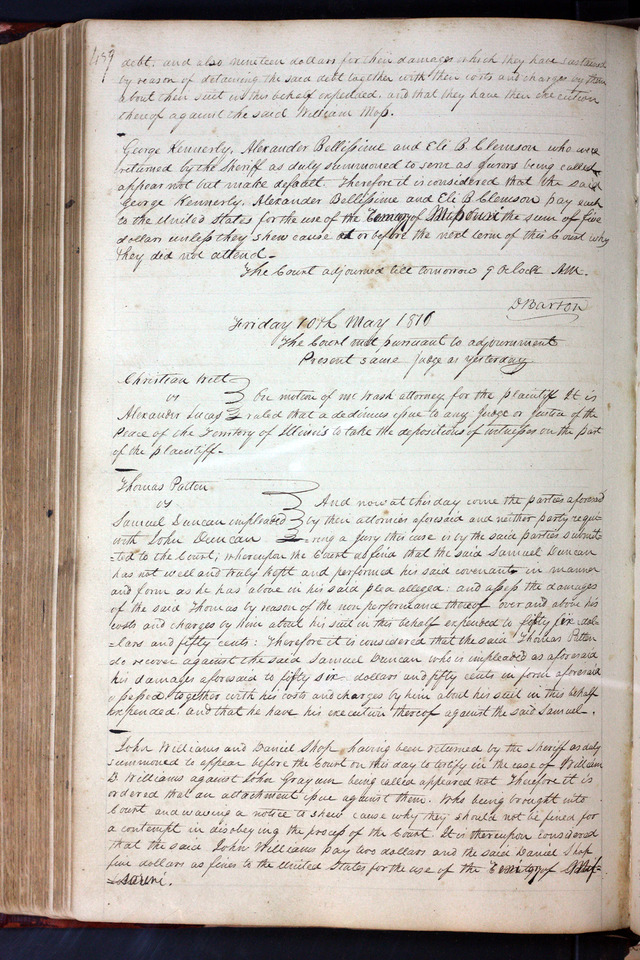 439
debt; and also nineteen dollars for their damages which they have sustained
by reason of detaining the said debt together with their costs and charges by them
about their suit in this behalf expended, and that they have their execution
thereof against the said William Moss.
George Kennerly, Alexander Bellissime and Eli B Clemson who were
returned by the Sheriff as duly summoned to serve as jurors being called
appear not but make default. Therefore it is considered that the said
George Kennerly, Alexander Bellissime and Eli B Clemson pay each
to the United States for the use of the Terrory of Missouri the sum of five
dollars unless they shew cause at or before the next term of this Court why
they did not attend -
The Court adjourned till tomorrow 9 Oclock AM.
D Barton
Friday 10th May 1816
The Court met pursuant to adjournment
Present same Judge as yesterday
Christian Witt
vs On motion of mr Wash attorney for the plaintiff It is
Alexander Lucas ruled that a dedimus issue to any Judge or Justice of the
Peace of the Territory of Illinois to take the depositions of witnesses on the part
of the plaintiff -
Thomas Patten
vs And now at this day come the parties aforesaid
Samuel Duncan impleaded by their attornies aforesaid and neither party requi-
with John Duncan -ring a jury this case is by the said parties submit
-ted to the Court; whereupon the Court as said that the said Samuel Duncan
has not well and truly kept and performed his said covenants in manner
and form as he has above in his said plea alleged: and assess the damages
of the said Thomas by reason of the non performance thereof over and above his
costs and charges by him about his suit in this behalf expended to fifty six dol-
-lars and fifty cents: Therefore it is considered that the said Thomas Patten
do recover against the said Samuel Duncan who is impleaded as aforesaid
his damages aforesaid to fifty six dollars and fifty cents in form aforesaid
assessed together with his costs and charges by him about his suit in this behalf
expended: and that he have his execution thereof against the said Samuel.
John Williams and Daniel Shop having been returned by the Sheriff as duly
summoned to appear before the Court on this day to testify in the case of William
D Williams against John Grayum being called appeared not Therefore it is
ordered that an attachment issue against them. Who being brought into
Court and waving a notice to shew cause why they should not be fined for
a contempt in disobeying the process of the Court. It is thereupon considered
that the said John Williams pay two dollars and the said Daniel Shop
five dollars as fines to the United States for the use of the Territory of Mis-
-souri.